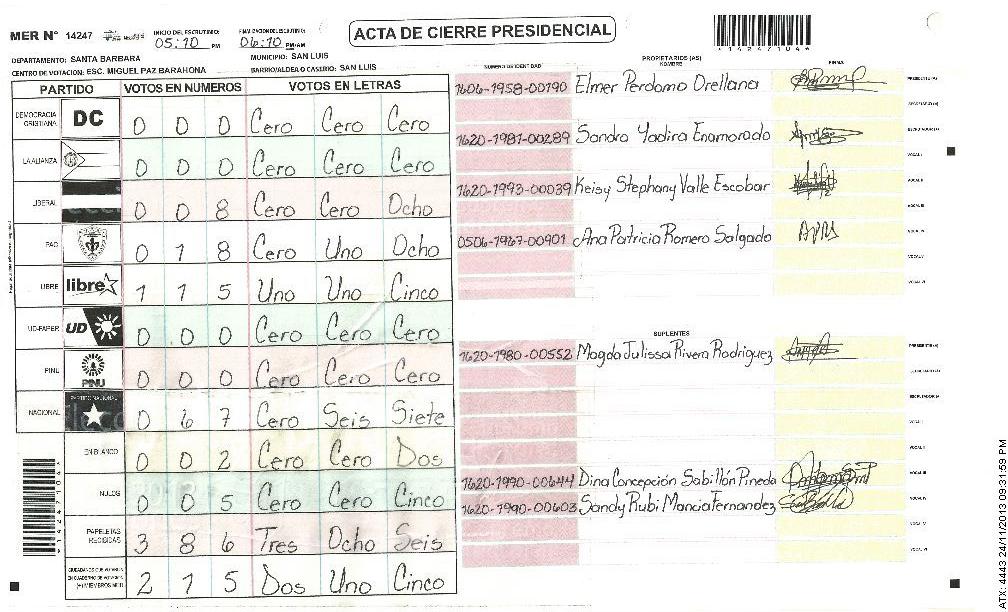 MER N° 14247
INICIO DEL ESCRUTINIO:
05:10 PM
FINALIZACION DEL ESCRUTINIO:
06:10 PM/AM
ACTA DE CIERRE PRESIDENCIAL
DEPARTAMENTO: SANTA BARBARA
MUNICIPIO: SAN LUIS
CENTRO DE VOTACION: ESC. MIGUEL PAZ BARAHONA
BARRIO/ALDEA O CASERIO: SAN LUIS
PARTIDO VOTOS EN NUMEROS VOTOS EN LETRAS
DEMOCRACIA CRISTIANA DC 0 0 0 Cero Cero Cero
LA ALIANZA 0 0 0 Cero Cero Cero
LIBERAL 0 0 8 Cero Cero Ocho
PAC 0 1 8 Cero Uno Ocho
LIBRE libre 1 1 5 Uno Uno Cinco
UD-FAPER UD 0 0 0 Cero Cero Cero
PINU PINU 0 0 0 Cero Cero Cero
NACIONAL PARTIDO NACIONAL 0 6 7 Cero Seis Siete
EN BLANCO 0 0 2 Cero Cero Dos
NULOS 0 0 5 Cero Cero Cinco
PAPELETAS RECIBIDAS 3 8 6 Tres Ocho Seis
CIUDADANOS QUE VOTARON EN CUADERNO DE VOTACION (+) MIEMBROS MER 2 1 5 Dos Uno Cinco
NUMERO DE IDENTIDAD
PROPIETARIOS (AS)
NOMBRE
FIRMA
1606-1958-00190 Elmer Perdomo Orellana PRESIDENTE (A)
SECRETARIO (A)
1620-1981-00289 Sandra Yadira Enamorado ESCRUTADOR (A)
VOCAL I
1620-1993-00039 Keisy Stephany Valle Escobar VOCAL II
VOCAL III
0506-1967-00901 Ana Patricia Romero Salgado VOCAL IV
VOCAL V
VOCAL VI
SUPLENTES
1620-1980-00552 Magda Julissa Rivera Rodriguez PRESIDENTE (A)
SECRETARIO (A)
ESCRUTADOR (A)
VOCAL I
VOCAL II
1620-1990-00644 Dina Concepción Sabillón Pineda VOCAL III
1620-1990-00603 Sandy Rubi Mancia Fernandez VOCAL IV
VOCAL V
VOCAL VI
ATX: 4443 24/11/2013 09:31:59 PM